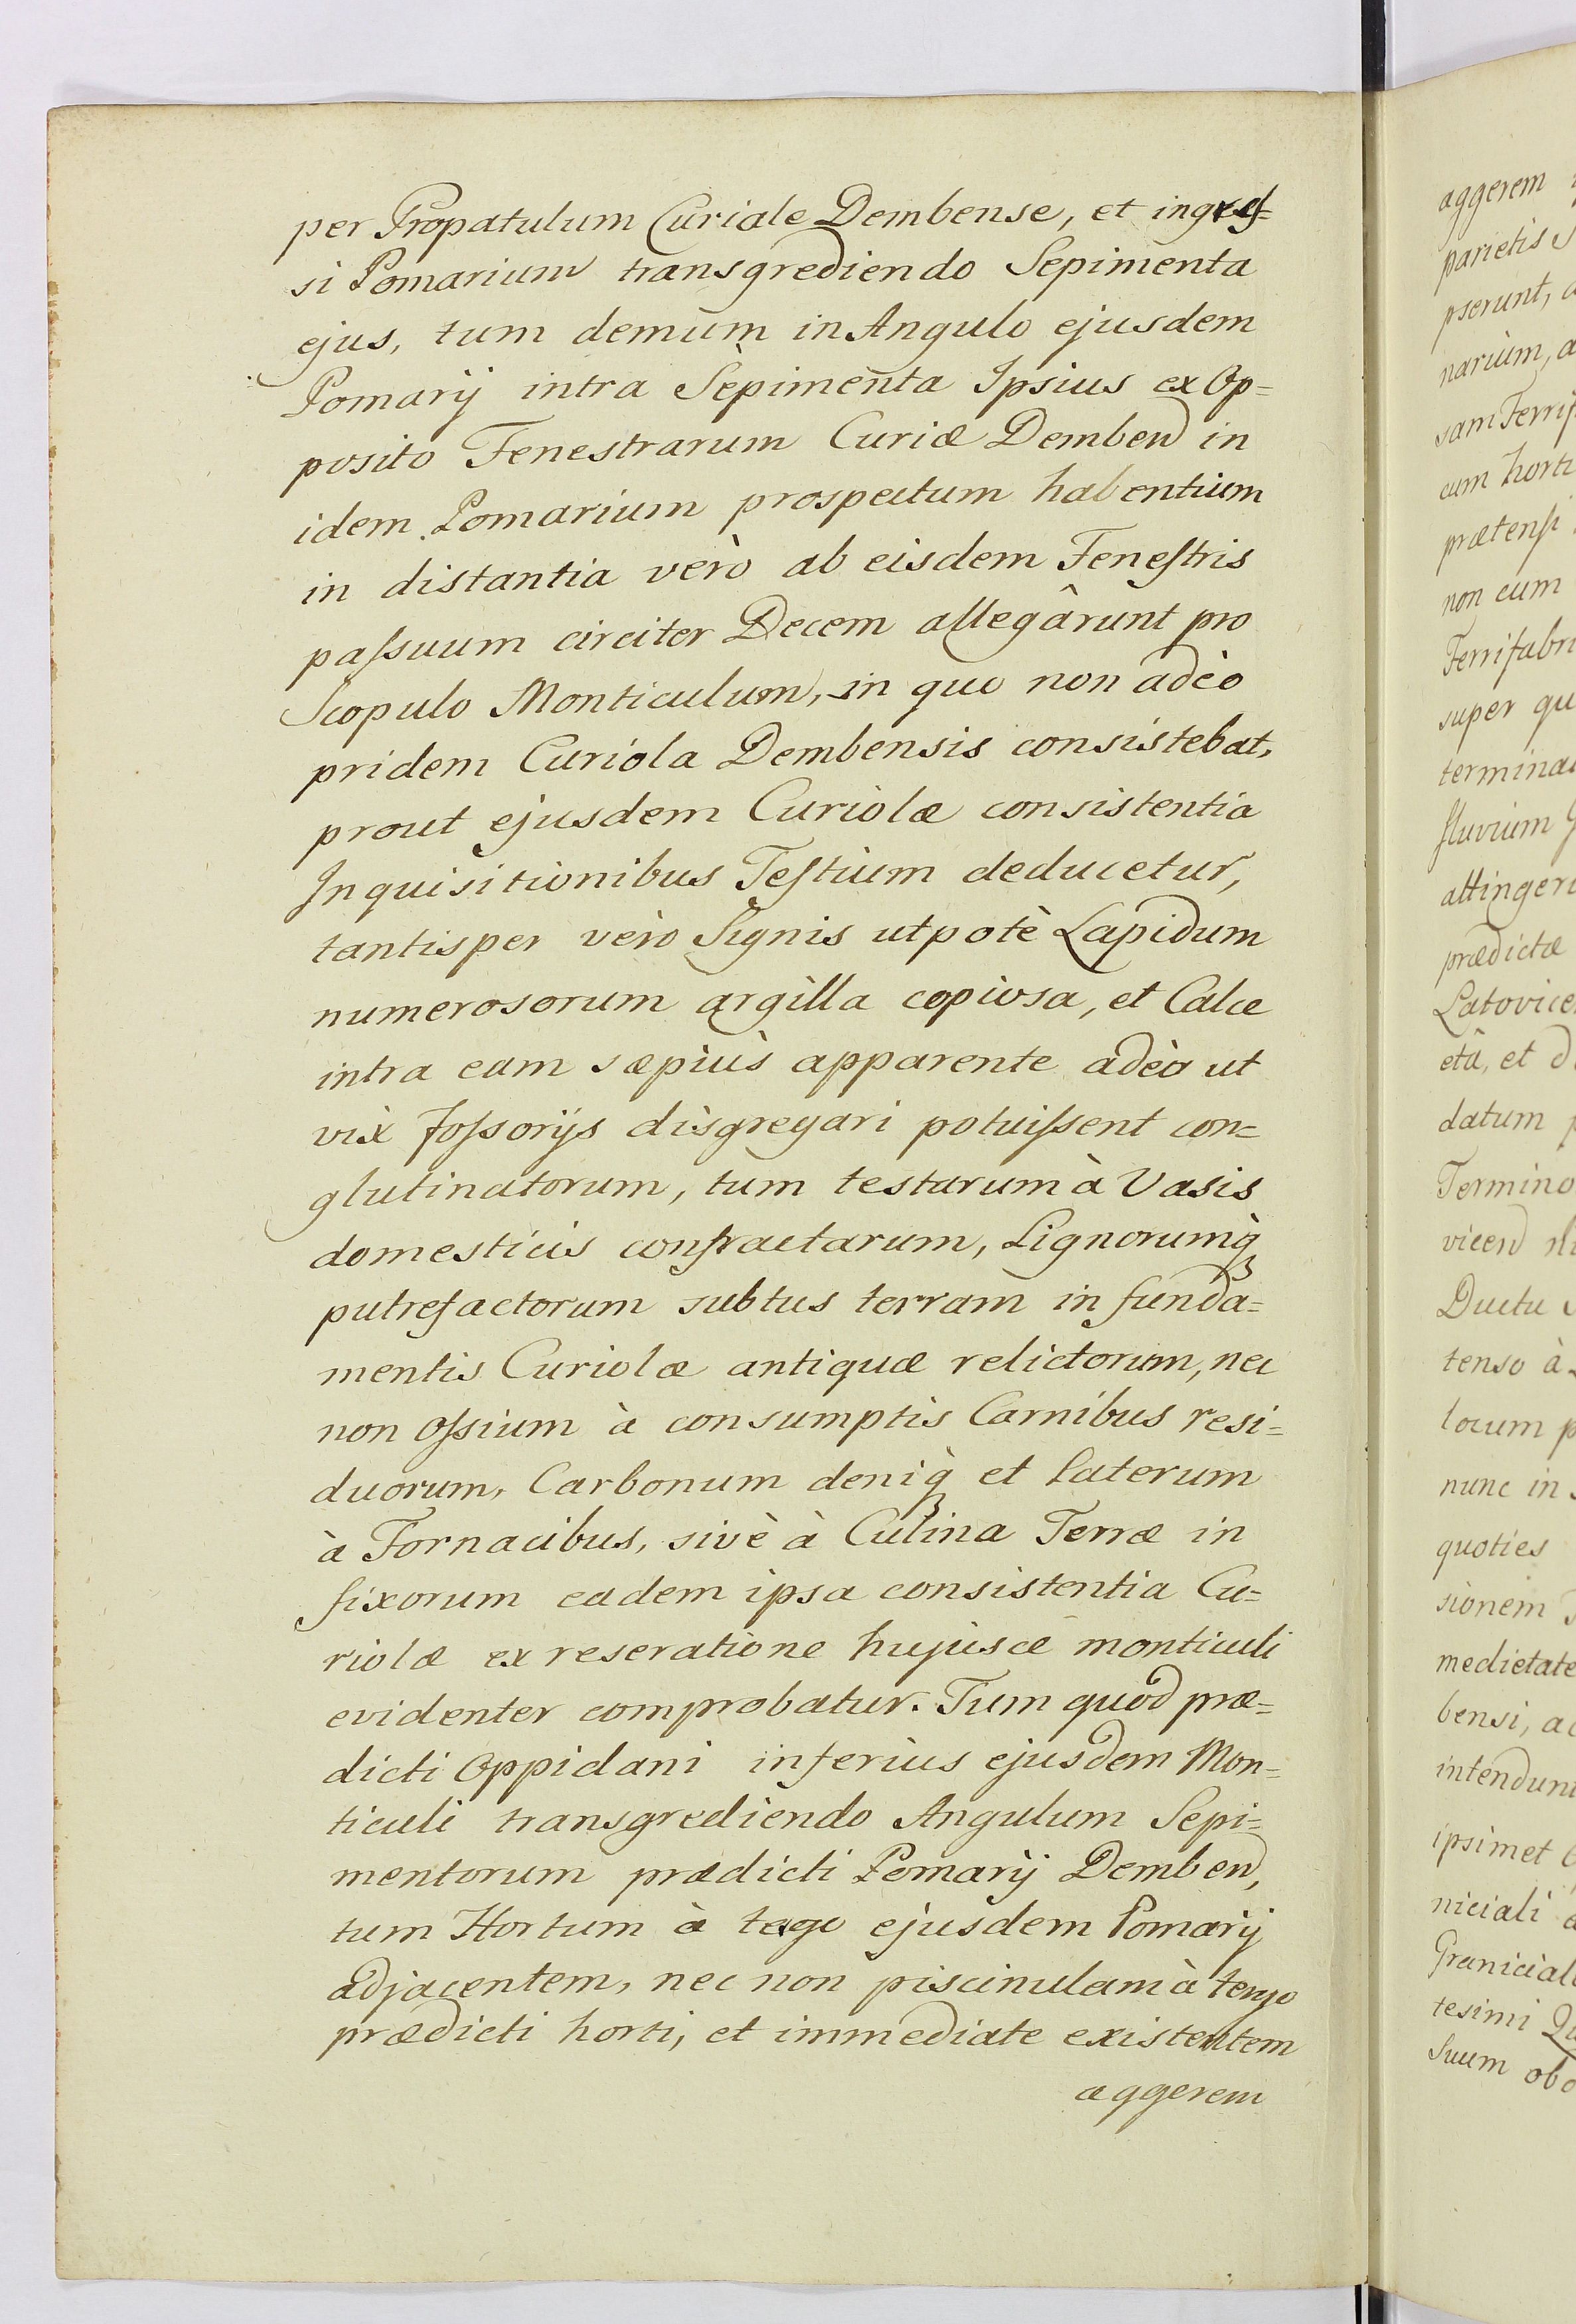 per Propatulum Curiale Dembense, et ingreſ=
si Pomarium transgrediendo Sepimenta
ejus, tum demùm in Angulo ejusdem
Pomarij intra Sepimenta Ipsius ex Op=
posito Fenestrarum Curiæ Demben in
idem Pomarium prospectum habentium
in distantia verò ab eisdem Feneſtris
paſsuum circiter Decem allegârunt pro
Scopulo Monticulum, in quo non adeò
pridem Curiola Dembensis consistebat,
prout ejusdem Curiolæ consistentia
Inquisitionibus Teſtium deducetur,
tantisper verò Signis utpotè Lapidum
numerosorum argilla copiosa, et Calce
intra eam sæpiùs apparente adèo ut
vix foſsorijs disgregari potuiſsent con=
glutinatorum, tum testarum à Vasis
domesticis confractarum, Lignorumq́3
putrefactorum subtus terram in funda=
mentis Curiolæ antiquæ relictorum, nec
non Oſsium à consumptis Carnibus resi=
duorum, Carbonum deniq̀3 et Laterum
à Fornacibus, sivè à Culina Terræ in
fixorum eadem ipsa consistentia Cu=
riolæ ex reseratione hujusce monticuli
evidenter comprobatur. Tum quòd præ=
dicti Oppidani inferius ejusdem Mon=
ticuli transgrediendo Angulum Sepi=
mentorum prædicti Pomarij Demben,
tum Hortum à tergo ejusdem Pomarij
adjacentem, nec non piscinulam à tergo
prædicti horti, et immediate existentem
aggerem
aggerem
parietis
pserunt,
narium,
sam Ferrif
cum horti
prætenſi
non cum
Ferrifabri
super qu
termina
fluvium
attingere
prædictæ
Latovice
etâ, et
datum
Termino
vicen
Ductu
tenso à
locum p
nunc in
quoties
sionem
medietate
bensi, ac
intendunt
ipsimet
niciali
Granicial
tesimi Qu
Suum obo